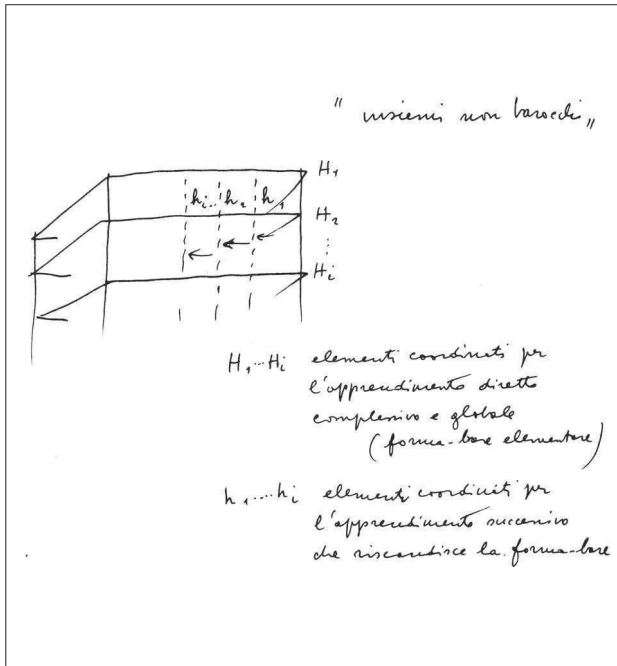 " insiemi non barocchi „
H₁
hᵢ.. h₂ h₁
H₂
⋮
Hᵢ
H₁...Hᵢ elementi coordinati per
l'apprendimento diretto
complessivo e globale
(forma-base elementare)
h₁....hᵢ elementi coordinati per
l'apprendimento successivo
che riscandisce la forma-base